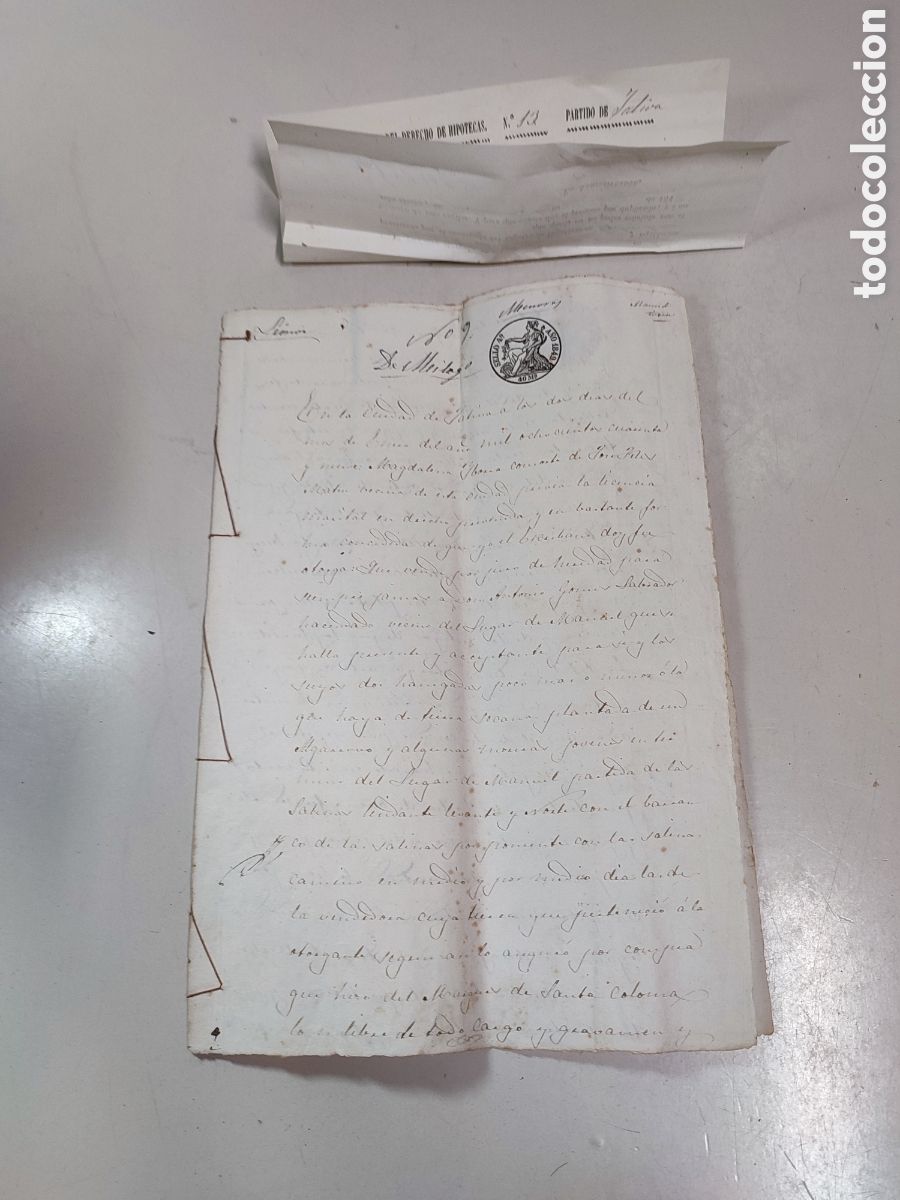 DEL DERECHO DE HIPOTECAS. N.º 13 PARTIDO DE Jativa
Menores
Manuel
Señor
No 9.
SELLO 4º AÑO 1849
40 Ms
En la Ciudad de Jativa a los dos dias del
mes de Junio del año mil ochocientos cuarenta
y nueve: Magdalena consorte de José
Mateu vecina de esta ciudad previa la licencia
marital en derecho prevenida y en bastante for
ma concedida de que yo el Escribano doy fee
otorga: Que vende por juro de heredad para
siempre jamas a Don Antonio Gomes Labrador
hacendado vecino del Lugar de Manuel que se
halla presente y aceptante para si y los
suyos dos hanegadas poco mas o menos ó lo
que haya de tierra secano plantada de un
Algarrovo y algunas moreras jovenes en ter
mino del Lugar de Manuel partida de las
Salinas lindante levante y Norte con el barran
co de las salinas por poniente con las salinas
camino en medio y por medio dia la de
la vendedora cuya tierra que perteneció á la
otorgante segun la adquirió por compra
que hizo del Marques de Santa Coloma
lo es libre de todo cargo y gravamen y
todocoleccion